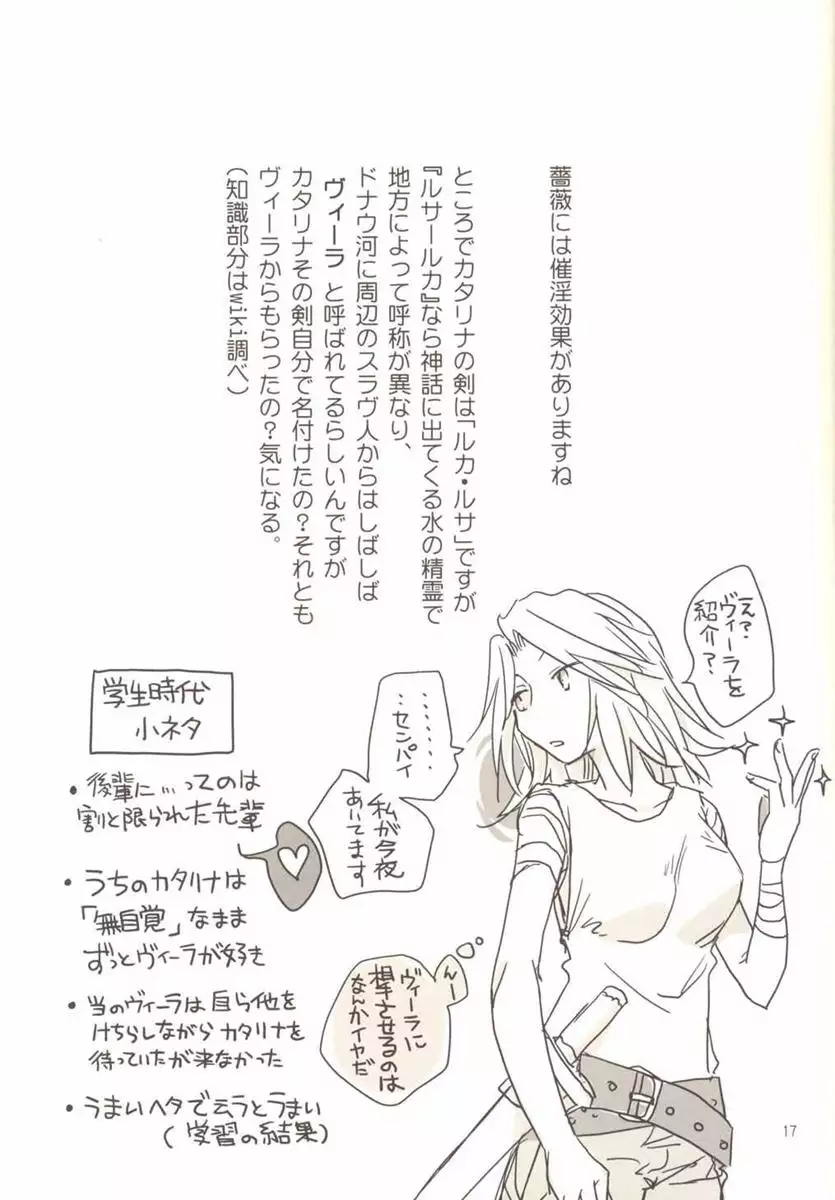 薔薇には催淫効果がありますね
ところでカタリナの剣は「ルカ・ルサ」ですが
『ルサールカ』なら神話に出てくる水の精霊で
地方によって呼称が異なり、
ドナウ河に周辺のスラヴ人からはしばしば
ヴィーラ と呼ばれてるらしいんですが
カタリナその剣自分で名付けたの？それとも
ヴィーラからもらったの？気になる。
（知識部分はwiki調べ）
え？
ヴィーラを
紹介？
‥‥‥‥
‥センパイ
私が今夜
あいてます
んー
ヴィーラに
相手させるのは
なんかイヤだ
学生時代
小ネタ
・後輩に…ってのは
割と限られた先輩
・うちのカタリナは
「無自覚」なまま
ずっとヴィーラが好き
・当のヴィーラは自ら他を
けちらしながらカタリナを
待っていたが来なかった
・うまいヘタで云うとうまい
（学習の結果）
17